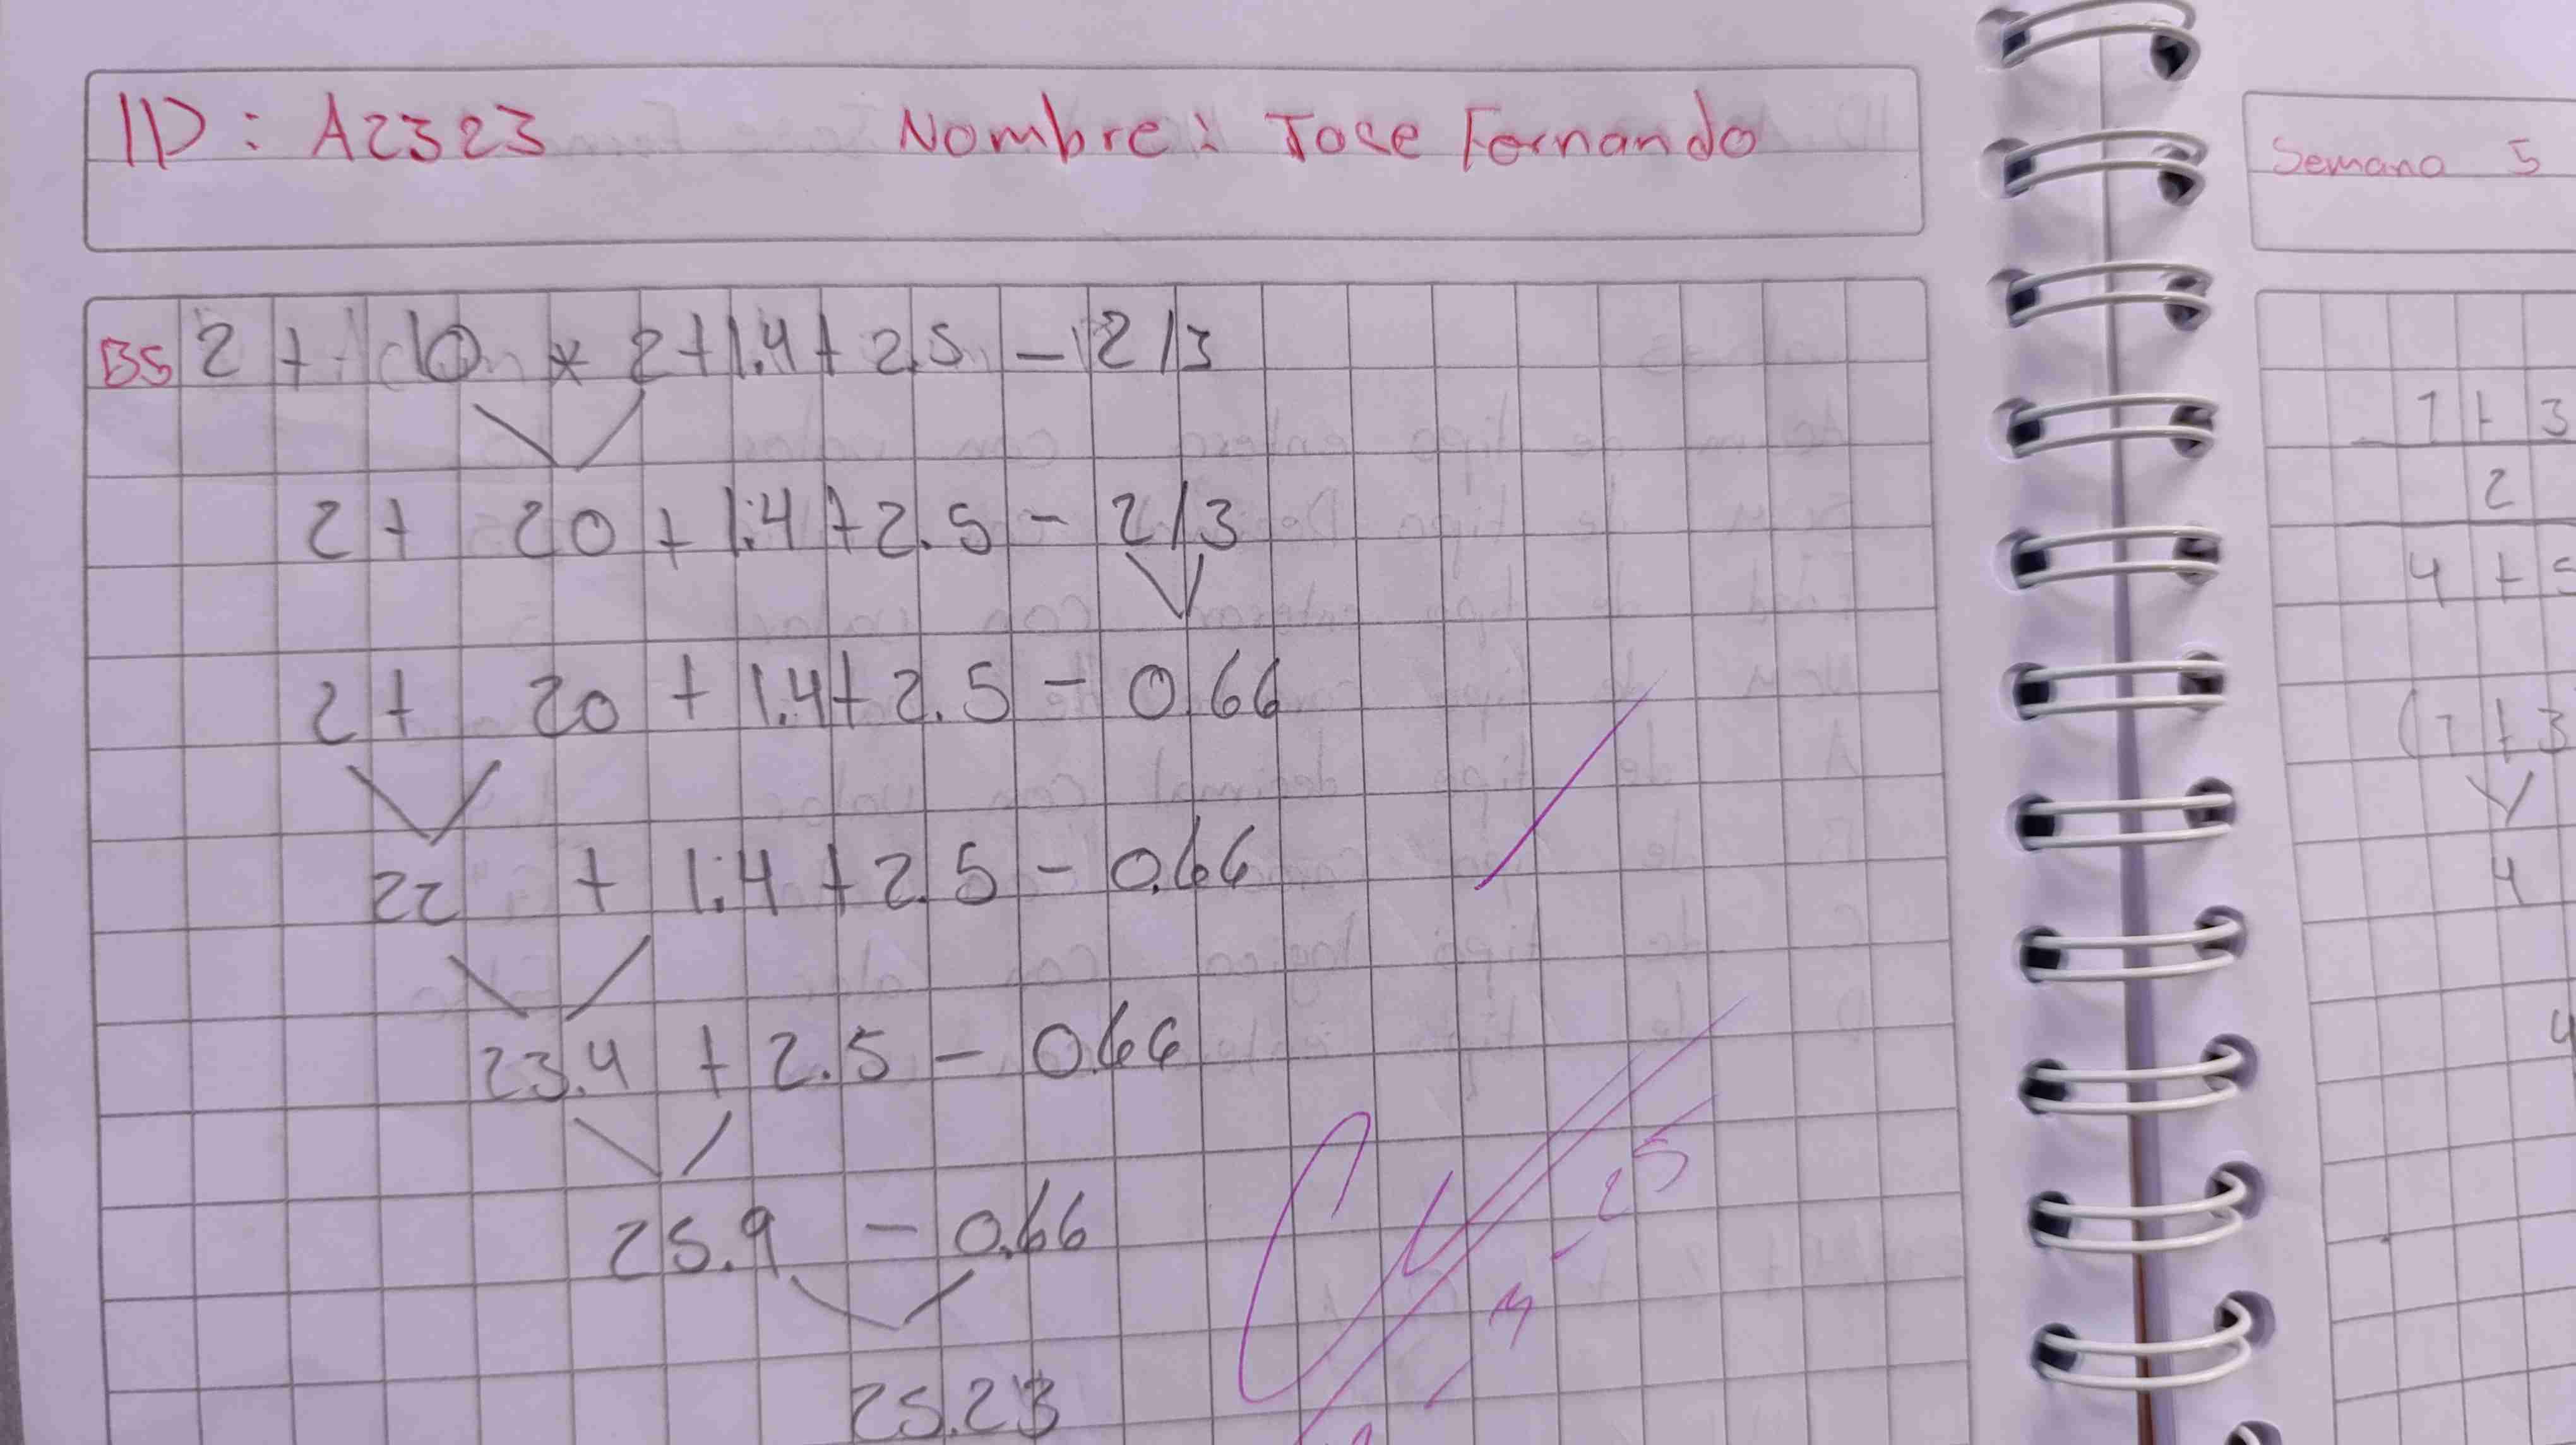 ID: A2323 Nombre: Jose Fernando
B5 2 + 10 * 2 + 1.4 + 2.5 - 2/3
2 + 20 + 1.4 + 2.5 - 2/3
2 + 20 + 1.4 + 2.5 - 0.66
22 + 1.4 + 2.5 - 0.66
23.4 + 2.5 - 0.66
25.9 - 0.66
25.23
Semana 5
1 + 3
2
4 +
(1 + 3
4
4